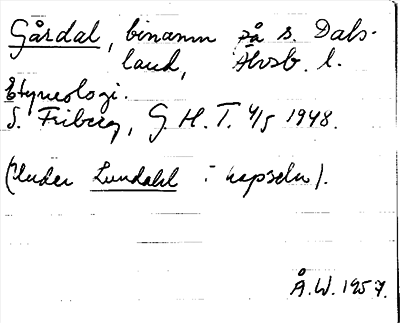 Gårdal, binamn på s. Dals-
land, Älvsb. l.
Etymologi.
S. Friberg, G. H. T. 4/5 1948.
(Under Lundahl i kapseln).
Å.W. 1957.